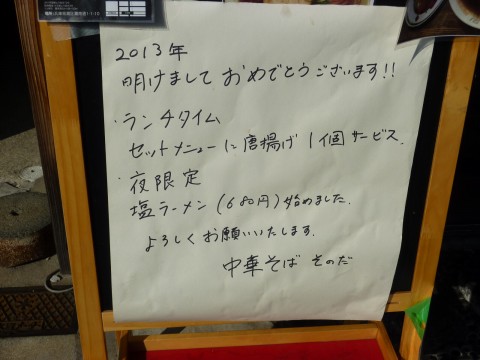 2013年
明けまして おめでとうございます!!
・ランチタイム
セットメニューに唐揚げ1個サービス.
・夜限定
塩ラーメン(680円)始めました.
よろしくお願いいたします.
中華そば そのだ